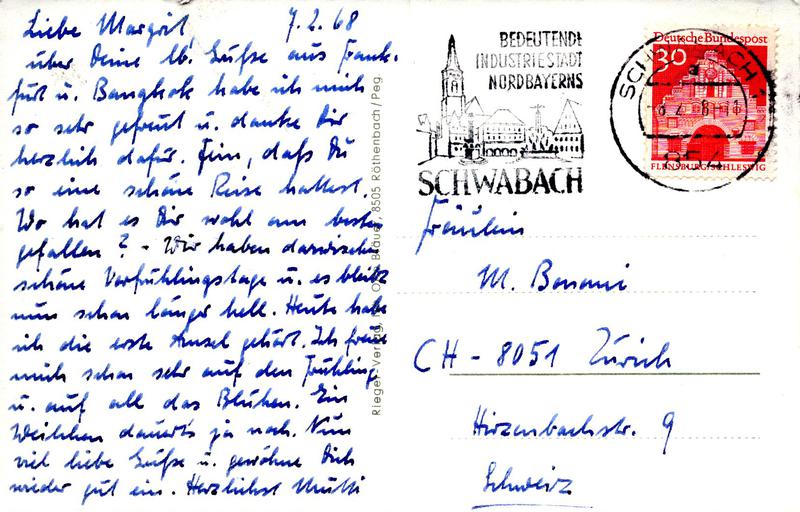 Liebe Margrit, 7.2.68
über Deine lb. Grüße aus Frank-
furt u. Bangkok habe ich mich
so sehr gefreut u. danke Dir
herzlich dafür. Fein, daß Du
so eine schöne Reise hattest.
Wo hat es Dir wohl am besten
gefallen? - Wir haben dazwischen
schöne Vorfrühlingstage u. es bleibt
nun schon länger hell. Heute habe
ich die erste Amsel gehört. Ich freue
mich schon sehr auf den Frühling
u. auf all das Blühen. Ein
Weilchen dauert's ja noch. Nun
viel liebe Grüße u. gewöhne Dich
wieder gut ein. Herzlichst Mutti
Rieger-Verlag, 8505 Röthenbach/Peg
BEDEUTENDE
INDUSTRIESTADT
NORDBAYERNS
SCHWABACH
Deutsche Bundespost
30
FLENSBURG/SCHLESWIG
SCHWABACH 1
a
854
Fräulein
M. Bonomi
CH - 8051 Zürich
Hirzenbachstr. 9
Schweiz